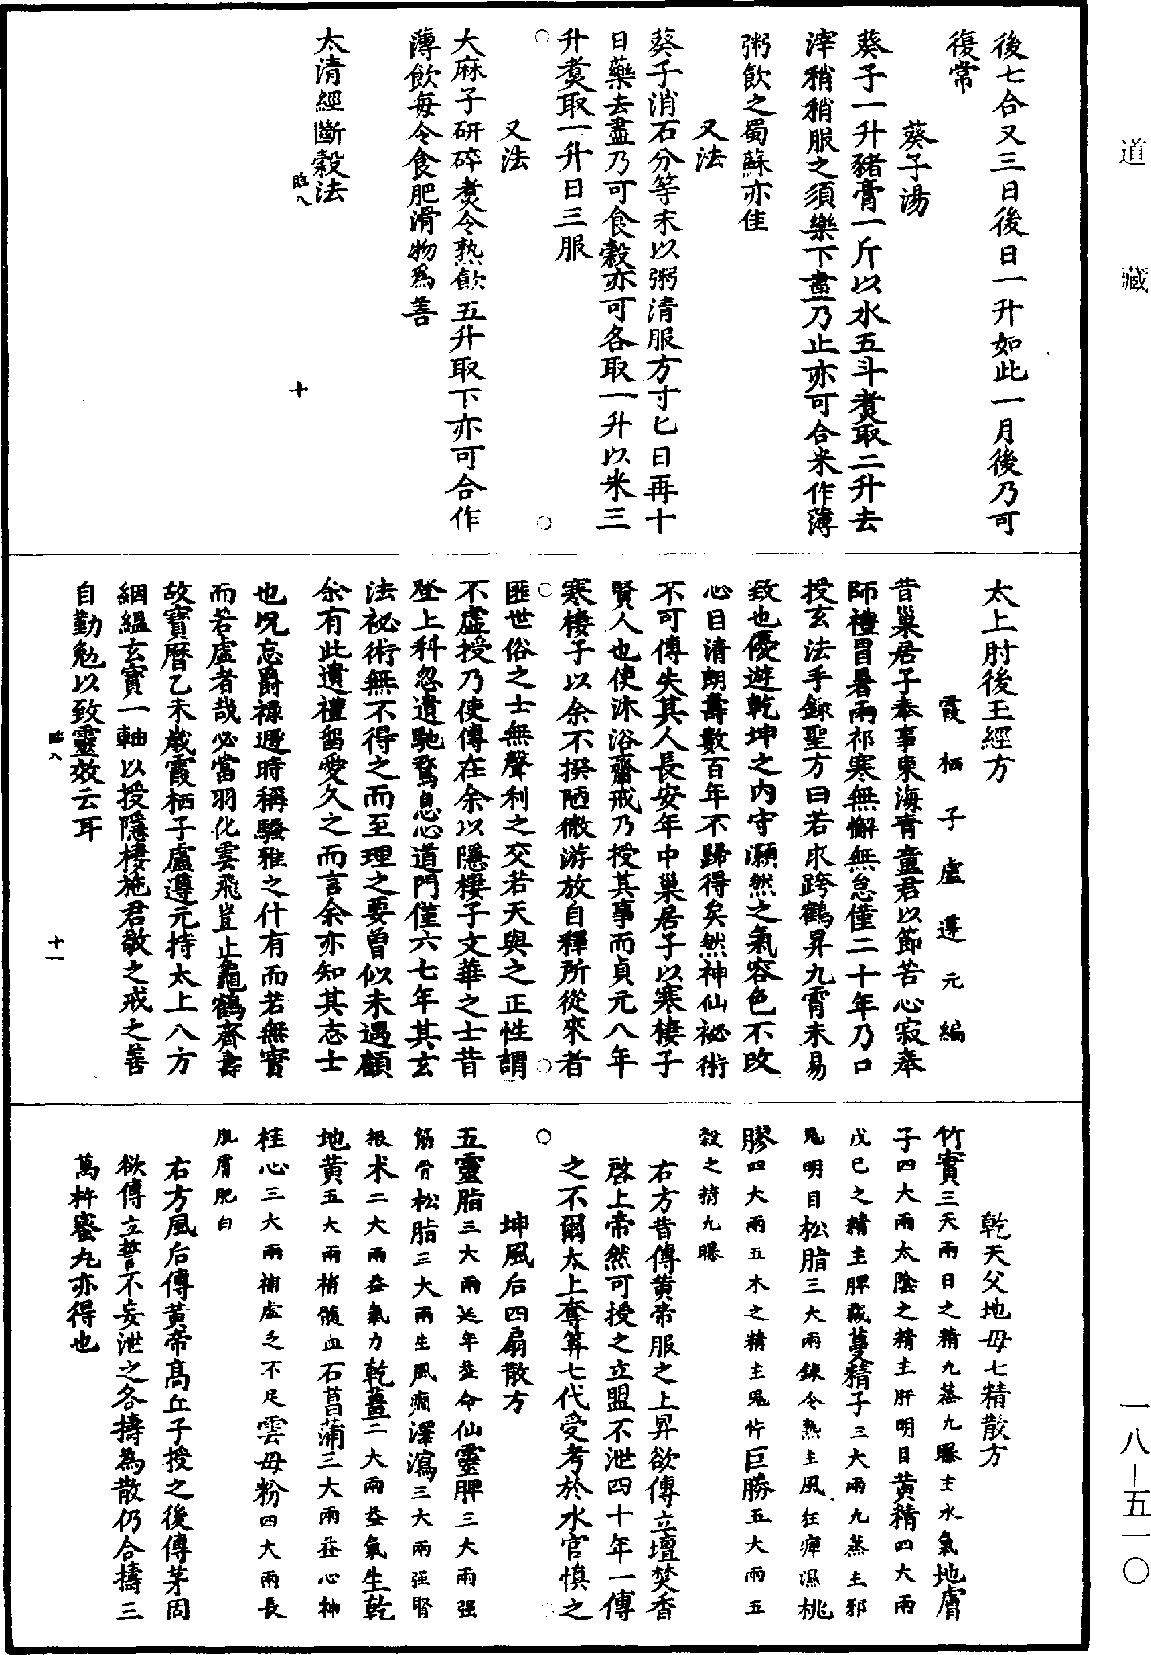 道藏
一八—五一〇
後七合又三日後日一升如此一月後乃可
復常
葵子湯
葵子一升豬膏一斤以水五斗煑取二升去
滓稍稍服之須藥下盡乃止亦可合米作薄
粥飲之蜀蘇亦佳
又法
葵子消石分等末以粥清服方寸匕日再十
日藥去盡乃可食穀亦可各取一升以米三
升煑取一升日三服
又法
大麻子研碎煑令熟飲五升取下亦可合作
薄飲每令食肥滑物爲善
太清經斷穀法
臨八
十
太上肘後玉經方
霞栖子盧遵元編
昔巢居子奉事東海青童君以節苦心寂奉
師禮冒暑雨祁寒無懈無怠僅二十年乃口
授玄法手錄聖方曰若求跨鶴昇九霄未易
致也優遊乾坤之內守灝然之氣容色不改
心目清朗壽數百年不歸得矣然神仙祕術
不可傳失其人長安年中巢居子以寒棲子
賢人也使沐浴齋戒乃授其事而貞元八年
寒棲子以余不揆陋微游放自釋所從來者
匪世俗之士無聲利之交若天與之正性謂
不虛授乃使傳在余以隱棲子文華之士昔
登上科忽遺馳騖息心道門僅六七年其玄
法祕術無不得之而至理之要曾似未遇顧
余有此遺禮留愛久之而言余亦知其志士
也況忘爵祿遯時稱騷雅之什有而若無實
而若虛者哉必當羽化雲飛豈止龜鶴齊壽
故寶曆乙未歲霞栖子盧遵元持太上八方
絪緼玄寶一軸以授隱棲施君敬之戒之善
自勤勉以致靈效云耳
臨八
十一
乾天父地母七精散方
竹實三大兩日之精九蒸九曝主水氣地膚
子四大兩太陰之精主肝明目黃精四大兩
戊己之精主脾藏蔓精子三大兩九蒸主邪
鬼明目松脂三大兩鍊令熟主風狂痺濕桃
膠四大兩五木之精主鬼忤巨勝五大兩五
穀之精九曝
右方昔傳黃帝服之上昇欲傳立壇焚香
啓上帝然可授之立盟不泄四十年一傳
之不爾太上奪算七代受考於水官慎之
坤風后四扇散方
五靈脂三大兩延年益命仙靈脾三大兩强
筋骨松脂三大兩主風癇澤瀉三大兩强腎
根术二大兩益氣力乾薑二大兩益氣生乾
地黃五大兩補髓血石菖蒲三大兩益心神
桂心三大兩補虛乏不足雲母粉四大兩長
肌膚肥白
右方風后傳黃帝高丘子授之後傳茅固
欲傳立誓不妄泄之各擣為散仍合擣三
萬杵蜜丸亦得也